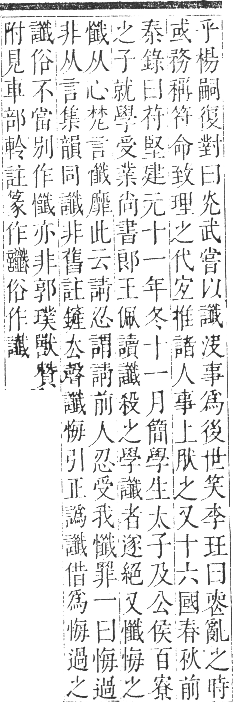 乎楊嗣復對曰灮武嘗以讖決事爲後世笑李玨曰喪亂之時
或務稱符命致理之代宜推諸人事上肰之又十六國春秋前
秦錄曰苻堅建元十一年冬十一月簡學生太子及公侯百寮
之子就學受業尚書郎王佩讀讖殺之學讖者逐絕又懺悔之
懺从心梵言懺靡此云請忍謂請前人忍受我懺罪一曰悔過
非从言集韻同讖非舊註鏟厺聲讖悔引正譌讖借爲悔過之
讖俗不當別作懺亦非郭璞獸贊
附見車部軨註篆作讖俗作䜟